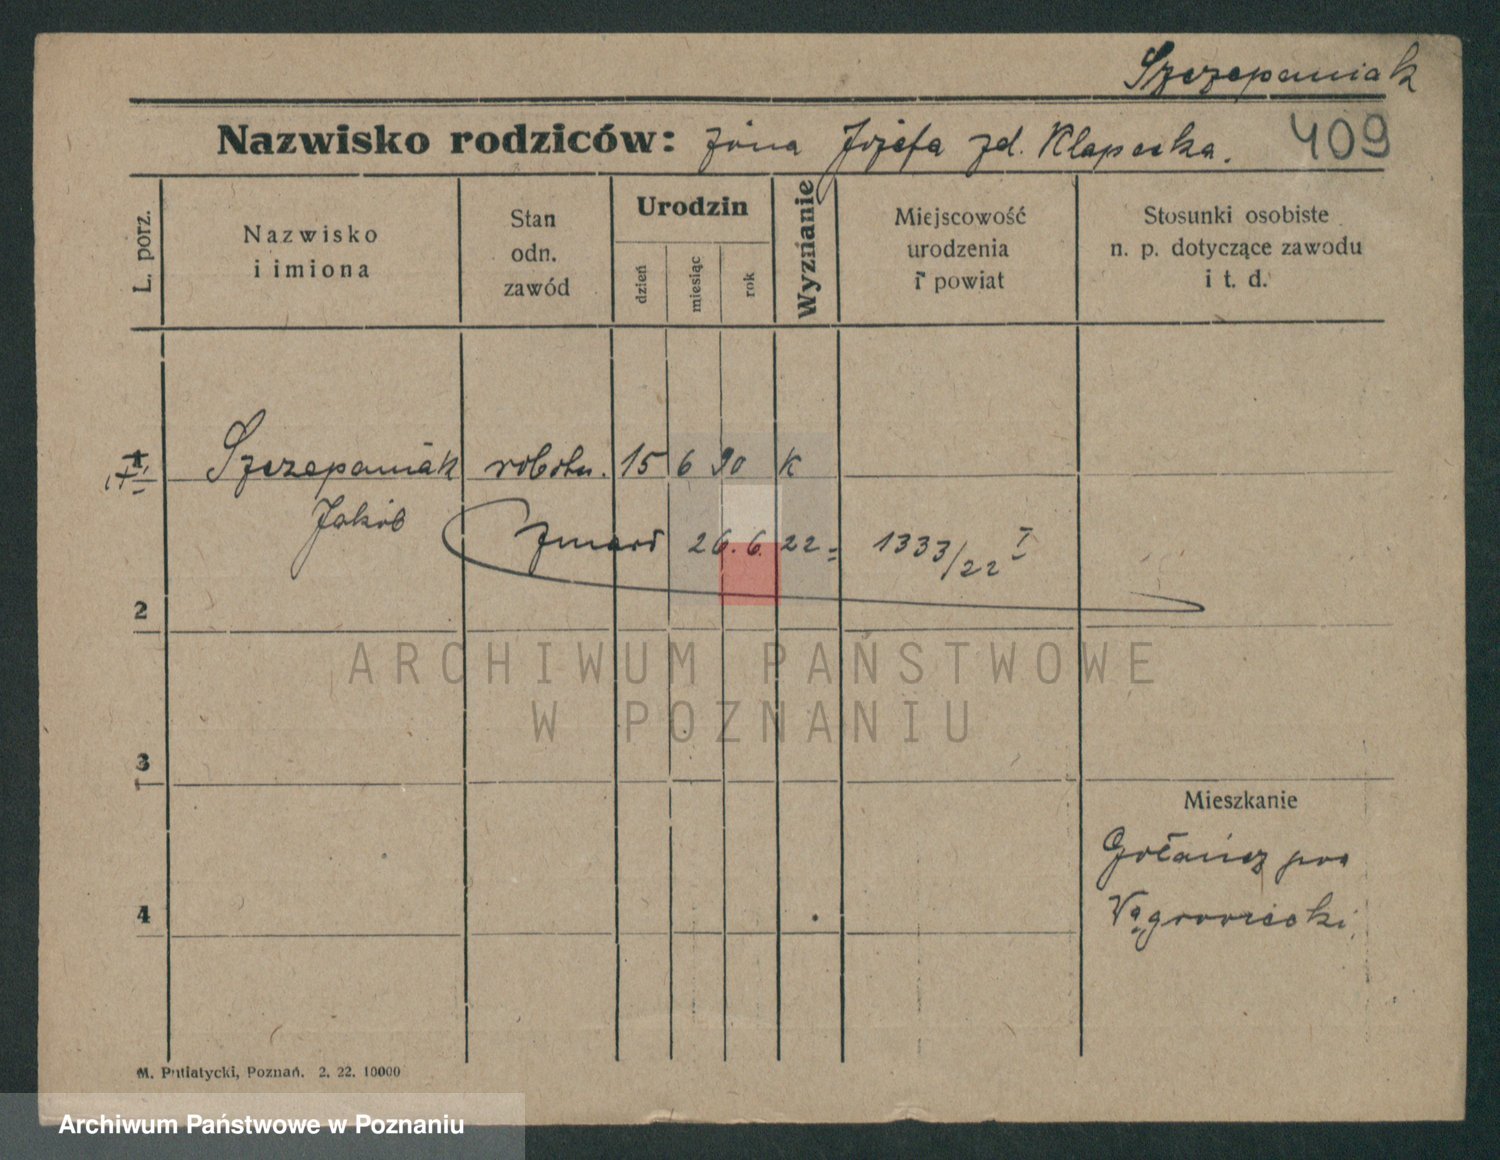 Szczepaniak
Nazwisko rodziców: żona Józefa zd. Klapecka.
409
L. porz.
Nazwisko
i imiona
Stan
odn.
zawód
Urodzin
dzień
miesiąc
rok
Wyznanie
Miejscowość
urodzenia
i powiat
Stosunki osobiste
n. p. dotyczące zawodu
i t. d.
1
Szczepaniak robotn. 15 6 90 K
Jakób
zmarł 26. 6. 22 1333/22 I
2
ARCHIWUM PAŃSTWOWE
W POZNANIU
3
Mieszkanie
Gołańcz pow
Wągrowiecki
4
M. Putiatycki, Poznań. 2. 22. 10000
Archiwum Państwowe w Poznaniu